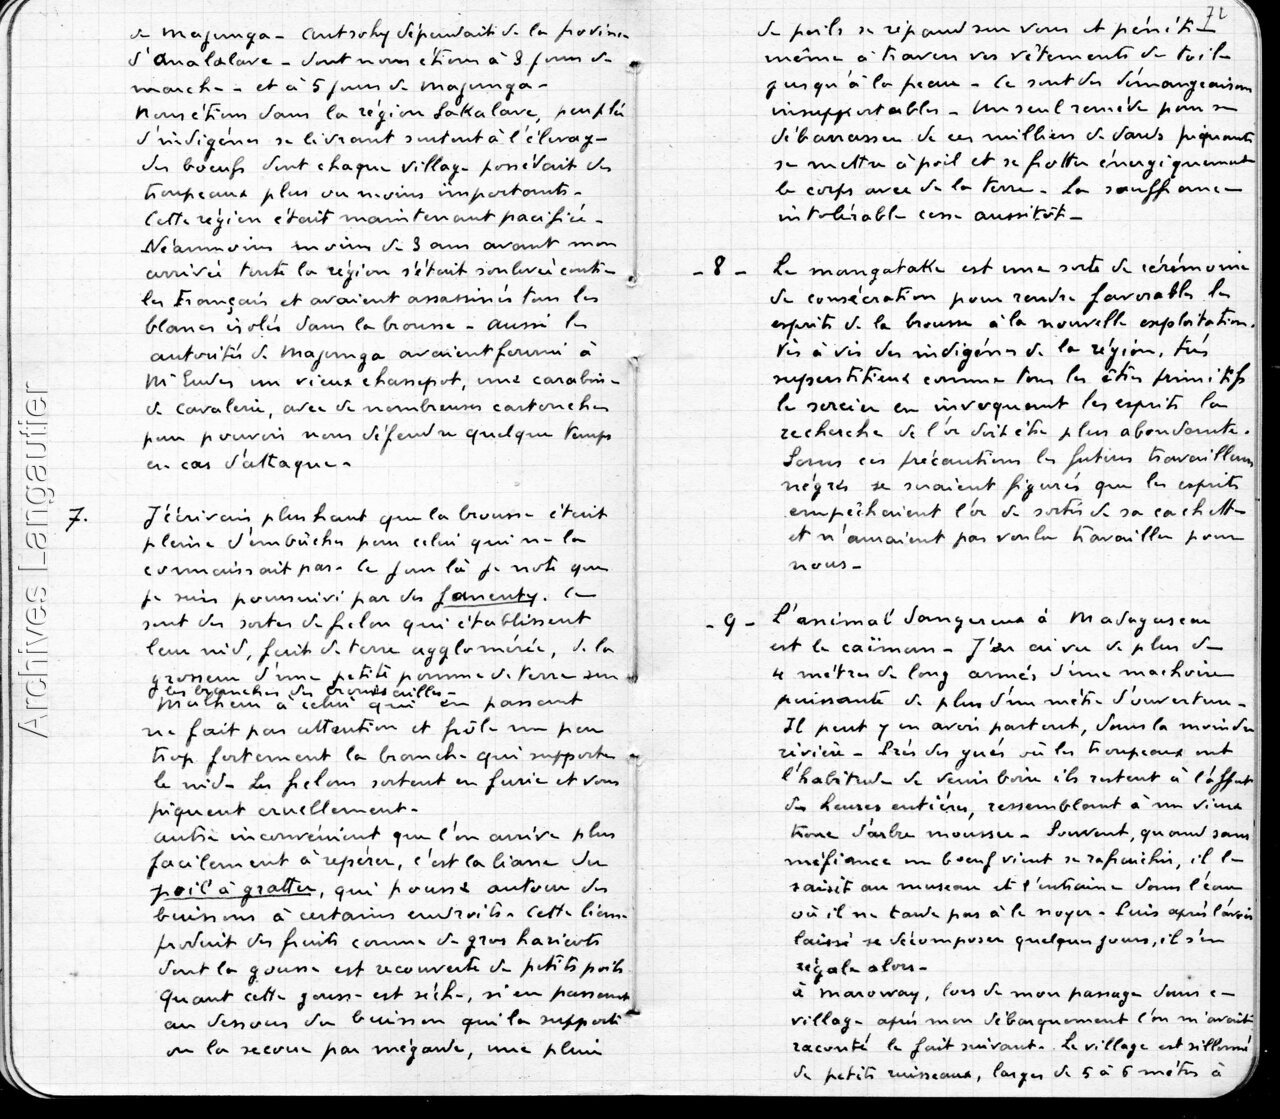 de Majunga - Antsohy dépendait de la province
d'Analalave - dont nous étions à 3 jours de
marche - et à 5 jours de Majunga -
Nous étions dans la région Sakalave, peuplée
d'indigènes se livrant surtout à l'élevage
des boeufs dont chaque village possédait des
troupeaux plus ou moins importants -
Cette région était maintenant pacifiée -
Néanmoins moins de 3 ans avant mon
arrivée toute la région s'était soulevée contre
les Français et avaient assassinés tous les
blancs isolés dans la brousse - Aussi les
autorités de Majunga avaient fourni à
Mr Eudes un vieux chassepot, une carabine
de cavalerie, avec de nombreuses cartouches
pour pouvoir nous défendre quelque temps
en cas d'attaque -
7. J'écrivais plus haut que la brousse était
pleine d'embûches pour celui qui ne la
connaissait pas - Ce jour là je note que
je suis poursuivi par des fanenty. Ce
sont des sortes de frelon qui établissent
leur nid, fait de terre agglomérée, de la
grosseur d'une petite pomme de terre sur
les branches des broussailles -
Malheur à celui qui en passant
ne fait pas attention et frôle un peu
trop fortement la branche qui supporte
le nid - Les frelons sortent en furie et vous
piquent cruellement -
Autre inconvénient que l'on arrive plus
facilement à repérer, c'est la liane du
poil à gratter, qui pousse autour des
buissons à certains endroits - Cette liane
produit des fruits comme de gros haricots
dont la gousse est recouverte de petits poils
Quant cette gousse est sèche, si en passant
au dessous du buisson qui la supporte
on la secoue par mégarde, une pluie
72
de poils se répand sur vous et pénètre
même à travers vos vêtements de toile
jusqu'à la peau - Ce sont des démangeaisons
insupportables - Un seul remède pour se
débarrasser de ces milliers de dards piquants
se mettre à poil et se frotter énergiquement
le corps avec de la terre - La souffrance
intolérable cesse aussitôt -
- 8 - Le mangatakke est une sorte de cérémonie
de consécration pour rendre favorables les
esprits de la brousse à la nouvelle exploitation.
Vis à vis des indigènes de la région, très
superstitieux comme tous les êtres primitifs
le sorcier en invoquant les esprits la
recherche de l'or doit être plus abondante.
Sans ces précautions les futurs travailleurs
nègres se seraient figurés que les esprits
empêchaient l'or de sortir de sa cachette
et n'auraient pas voulu travailler pour
nous -
- 9 - L'animal dangereux à Madagascar
est le caïman - J'en ai vu de plus de
4 mètres de long armés d'une machoire
puissante de plus d'un mètre d'ouverture -
Il peut y en avoir partout, dans la moindre
rivière - Près des gués où les troupeaux ont
l'habitude de venir boire ils restent à l'affut
des heures entières, ressemblant à un vieux
tronc d'arbre moussu - Souvent, quand sans
méfiance un boeuf vient se rafraichir, il le
saisit au museau et l'entraine dans l'eau
où il ne tarde pas à le noyer - Puis après l'avoir
laissé se décomposer quelques jours, il s'en
régale alors -
à Maroway, lors de mon passage dans ce
village après mon débarquement l'on m'avait
raconté le fait suivant - Le village est sillonné
de petits ruisseaux, larges de 5 à 6 mètres à
Archives Langautier